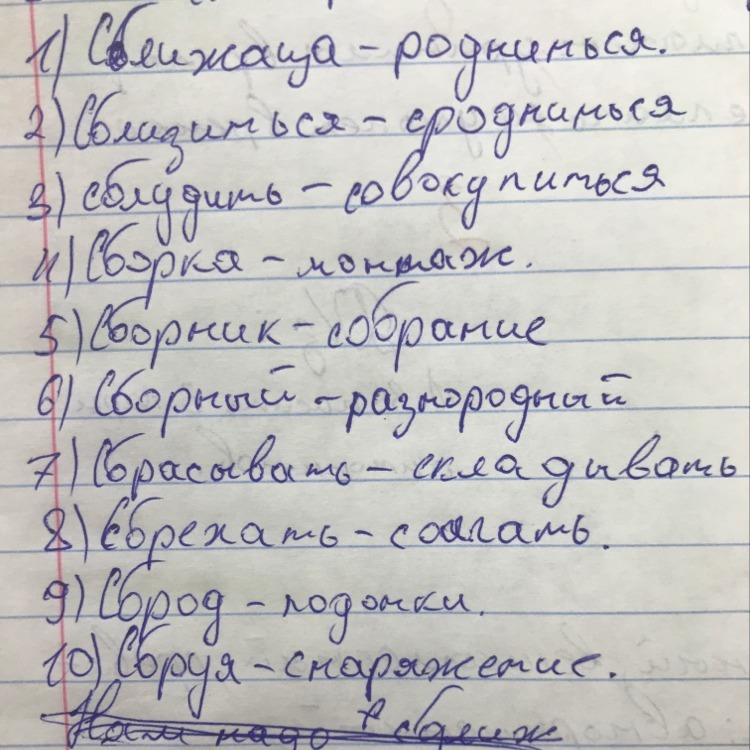 1) Сближаща - роднинься.
2) Сблизинься - сроднинься
3) сблудить - совокупиться
4) Сборка - монтаж.
5) Сборник - собрание
6) Сборный - разнородный
7) Сбрасывать - складывать
8) Сбрехать - солгать.
9) Сброд - подонки.
10) Сбруя - снаряжение.
Нам надо сближ